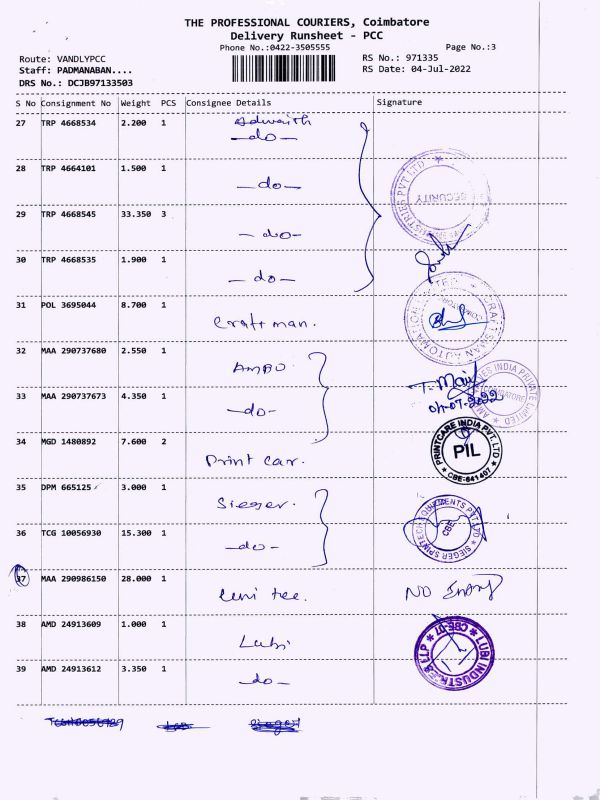 THE PROFESSIONAL COURIERS, Coimbatore
Delivery Runsheet - PCC
Phone No.:0422-3505555
Page No.:3
Route: VANDLYPCC
RS No.: 971335
Staff: PADMANABAN....
RS Date: 04-Jul-2022
DRS No.: DCJB97133503
S No Consignment No Weight PCS Consignee Details Signature
27 TRP 4668534 2.200 1 Adwaith
—do—
28 TRP 4664101 1.500 1
—do—
SECURITY
29 TRP 4668545 33.350 3
—do—
30 TRP 4668535 1.900 1
—do—
31 POL 3695044 8.700 1
Craftman.
32 MAA 290737680 2.550 1
33 MAA 290737673 4.350 1
—do—
04-07-2022
34 MGD 1480892 7.600 2
Print car.
PRINTCARE INDIA PVT. LTD
PIL
CBE-641407
35 DPM 665125 3.000 1
Sieger.
36 TCG 10056930 15.300 1
—do—
CBE
37 MAA 290986150 28.000 1
NO Entry
38 AMD 24913609 1.000 1
Lubi
39 AMD 24913612 3.350 1
—do—